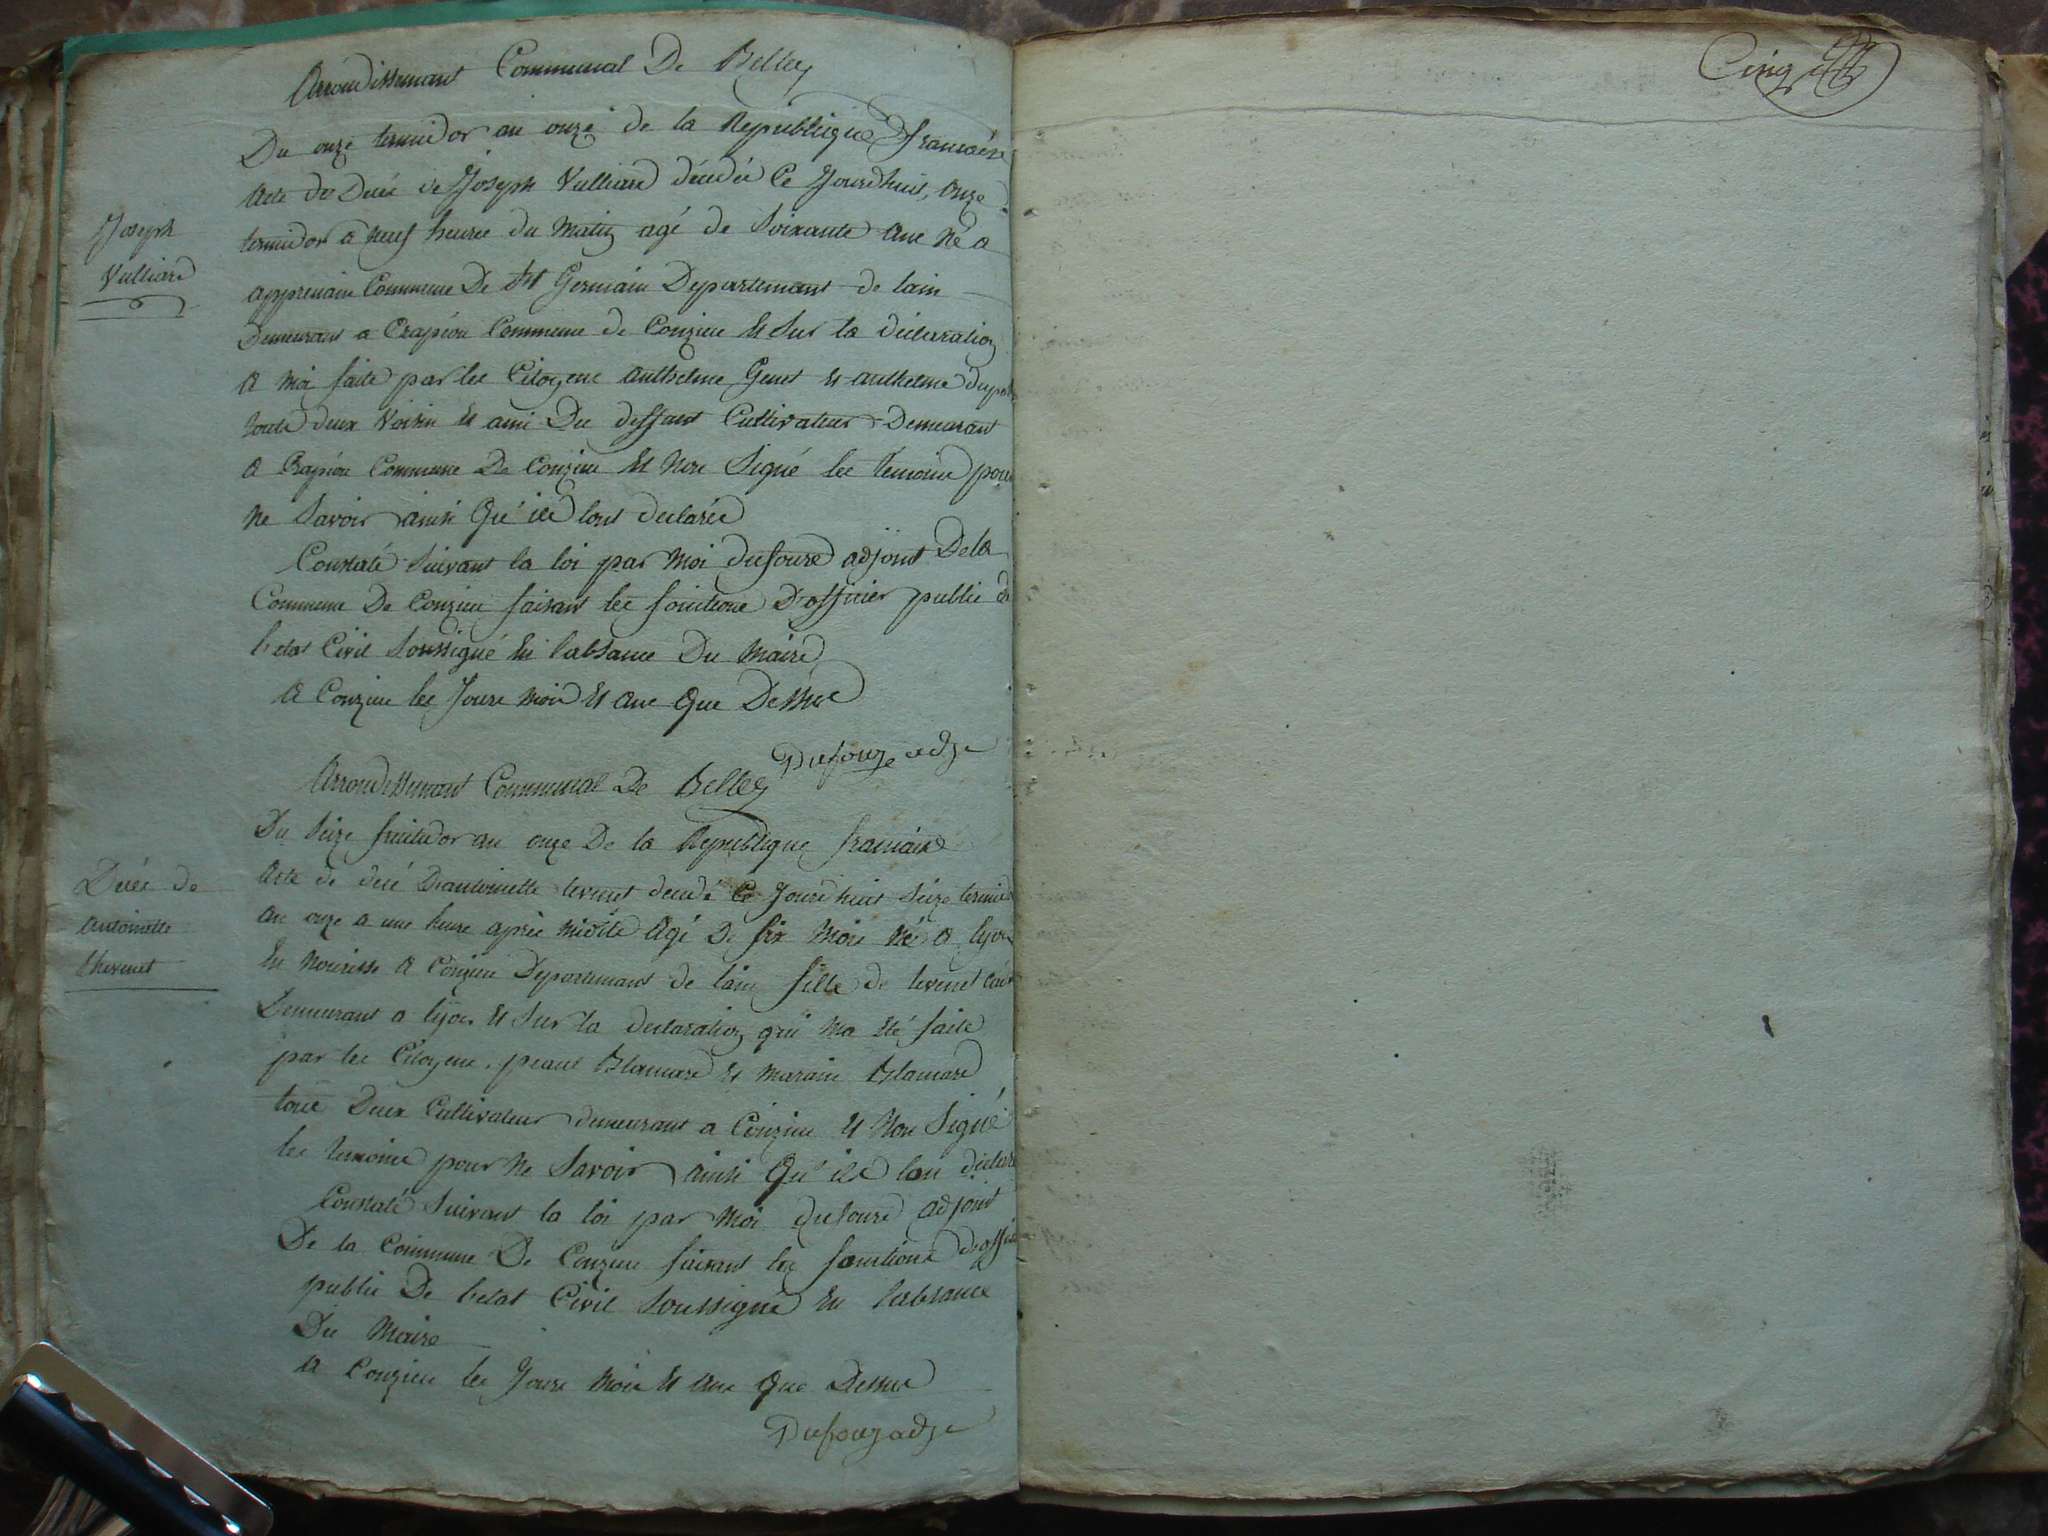 Arrondissemant Communal De Belley
Du onze termidor an onze de la Republique francaise
Joseph
Vulliard
Acte de Decé de Joseph Vulliard décédé Ce Jourdhuit, onze
termidor a neuf heures du matin agé de Soixante ans Né a
apprenain Commune De St Germain Departemant de lain
Demeurant a Crapéou Commune de Conzieu Et Sur la déclaration
a moi faite par les Citoyens anthelme Genet Et anthelme
touts deux Voisin Et ami Du deffunt Cultivateur Demeurant
a Crapéou Commune De Conzieu Et Non Signé les témoins pour
Ne Savoir ainsi Qu'ils lont declarés
Constaté Suivant la loi par Moi dufourd adjoint De la
Commune De Conzieu faisant les fonctions D'officier public de
l'etat Civil Soussigné En l'absance Du Maire
a Conzieu les Jours Mois Et ans Que Dessus
Dufour adj
Arrondissemant Communal De Belley
Du Seize fruitidor an onze De la Republique francaise
Decés de
antoinette
thevenet
Acte de decé Dantoinette tevenet decedé Ce Jourdhuit Seize
an onze a une heure après midite Agé De Six Mois Né a lyon
En Nourisse a Conzieu Departemant de lain fille de tevenet
Demeurant a lyon Et Sur la declaration qui Ma Eté faite
par les Citoyens Blancard Et Blancard
tous Deux Cultivateur demeurant a Conzieu Et Non Signé
les temoins pour Ne Savoir ainsi Qu'ils lon déclaré
Constaté Suivant la loi par Moi dufourd adjoint
De la Commune De Conzieu faisant les fonctions
public De l'etat Civil Soussigné En l'absance
Du Maire
a Conzieu les Jours Mois Et ans Que Dessus
Dufour adj
Cinq